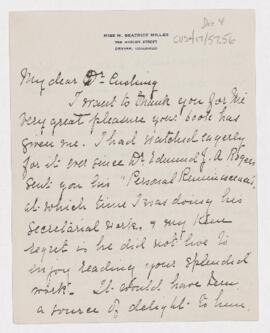 MISS M. BEATRICE MILLER
DENVER, COLORADO
Doc 4
CUS/17/57.56
My dear Dr. Cushing
I want to thank you for the
very great pleasure your book has
given me. I had watched eagerly
for it ever since Dr. Edmund J. A. Rogers
sent you his "Personal Reminiscences",
at which time I was doing his
secretarial work, & my keen
regret is he did not live to
enjoy reading your splendid
work. It would have been
a source of delight to him